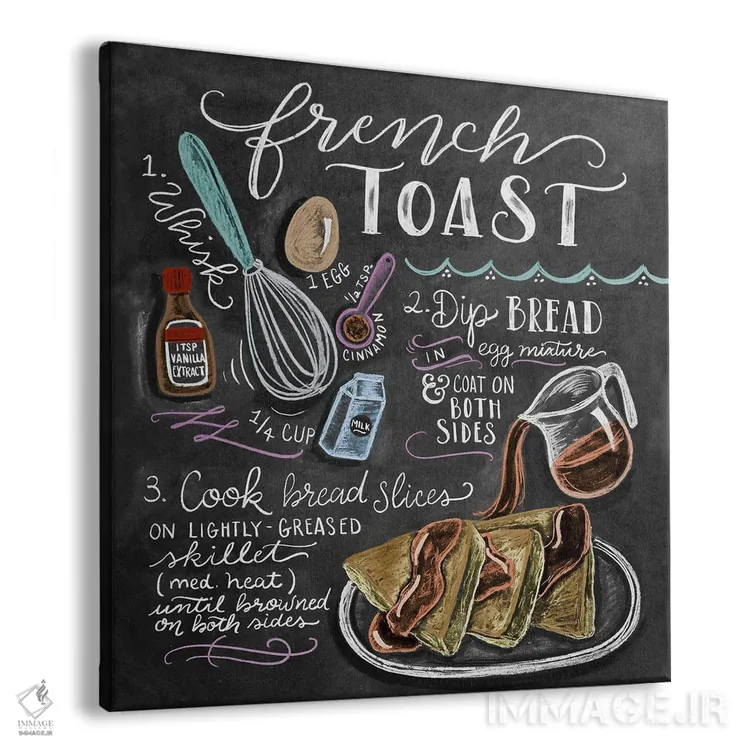 french
TOAST
1.
Whisk
1 EGG
1/2 TSP.
CINNAMON
1TSP
VANILLA
EXTRACT
1/4 CUP
MILK
2. Dip BREAD
IN egg mixture
& COAT ON
BOTH
SIDES
3. Cook bread slices
ON LIGHTLY-GREASED
skillet
(med. heat)
until browned
on both sides
IMMAGE
IMMAGE.IR
IMMAGE.IR